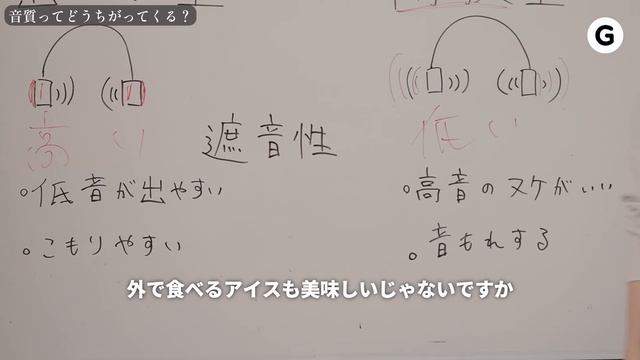 音質ってどうちがってくる？
G
高い
遮音性
低い
○低音が出やすい
○高音のヌケがいい
○こもりやすい
○音もれする
外で食べるアイスも美味しいじゃないですか